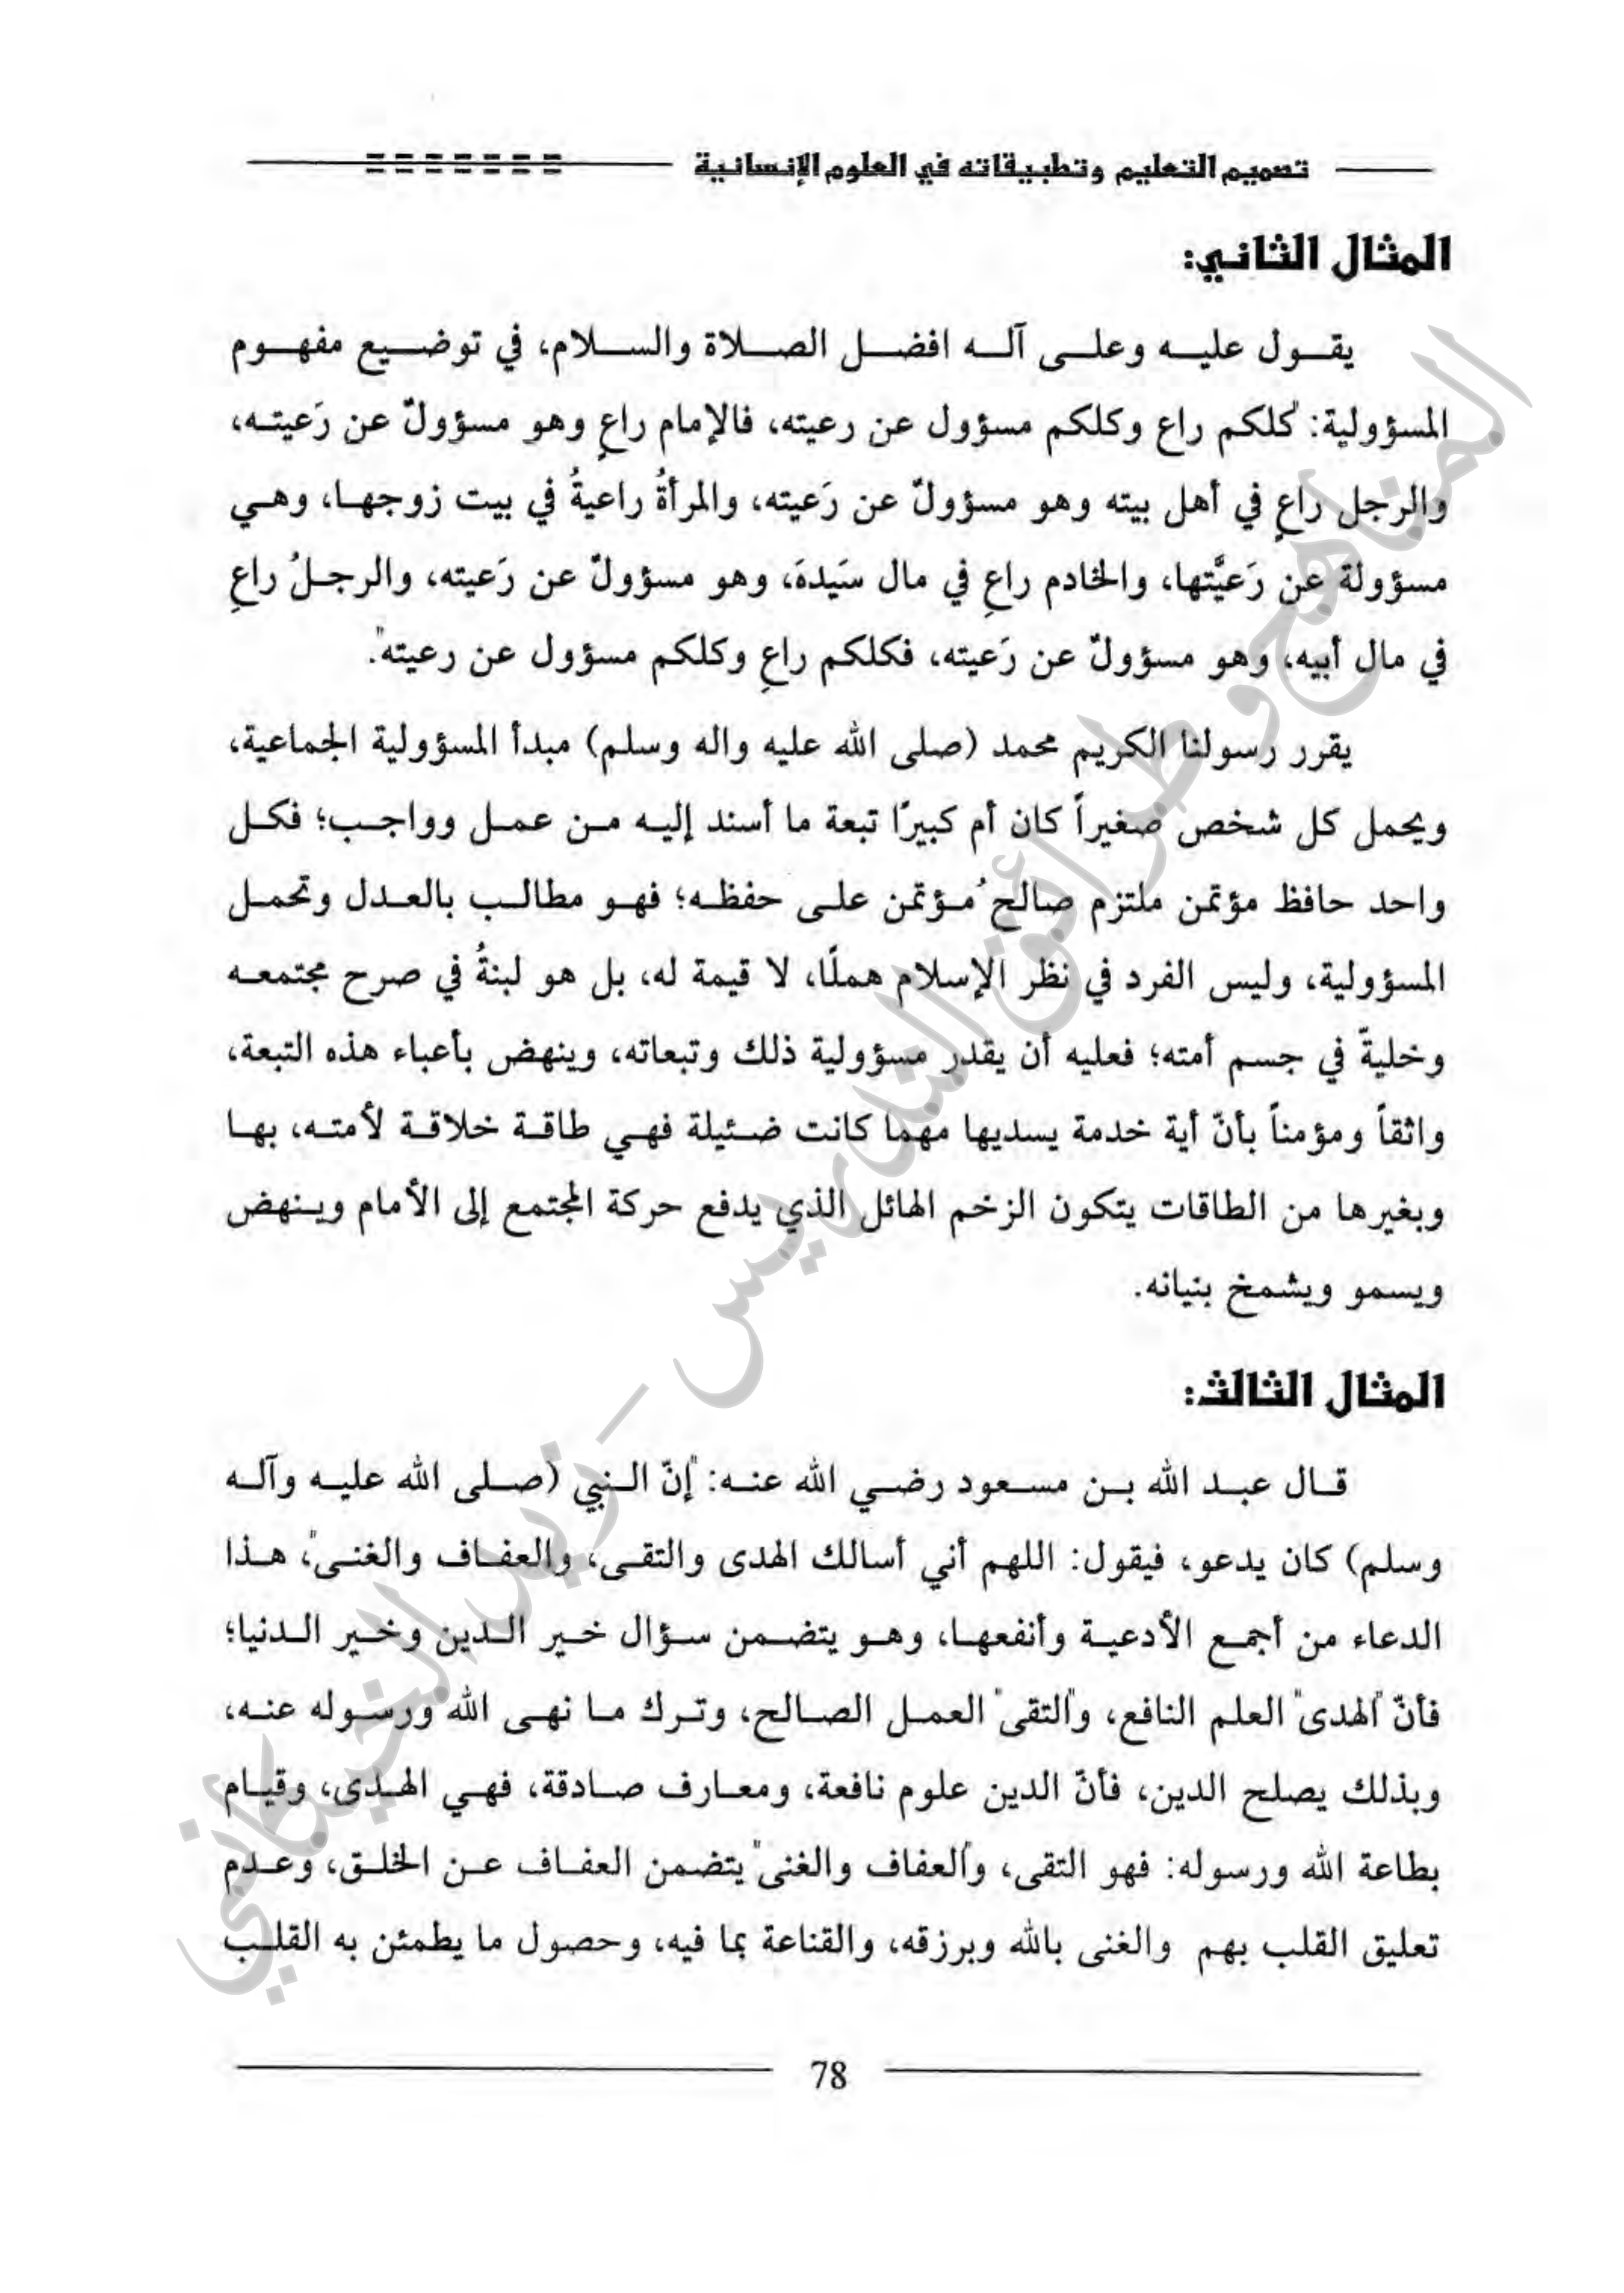 تصميم التعليم وتطبيقاته في العلوم الإنسانية
المثال الثاني:
يقول عليه وعلى آله افضل الصلاة والسلام، في توضيع مفهوم
المسؤولية: "كلكم راع وكلكم مسؤول عن رعيته، فالإمام راعٍ وهو مسؤولٌ عن رَعيته،
والرجل راعٍ في أهل بيته وهو مسؤولٌ عن رَعيته، والمرأةُ راعيةُ في بيت زوجها، وهي
مسؤولة عن رَعيَّتها، والخادم راعِ في مال سَيدهَ، وهو مسؤولٌ عن رَعيته، والرجلُ راعِ
في مال أبيه، وهو مسؤولٌ عن رَعيته، فكلكم راعِ وكلكم مسؤول عن رعيته".
يقرر رسولنا الكريم محمد (صلى الله عليه واله وسلم) مبدأ المسؤولية الجماعية،
ويحمل كل شخص صغيراً كان أم كبيرًا تبعة ما أسند إليه من عمل وواجب؛ فكل
واحد حافظ مؤتمن ملتزم صالحُ مؤتمن على حفظه؛ فهو مطالب بالعدل وتحمل
المسؤولية، وليس الفرد في نظر الإسلام هملًا، لا قيمة له، بل هو لبنةُ في صرح مجتمعه
وخليةّ في جسم أمته؛ فعليه أن يقدر مسؤولية ذلك وتبعاته، وينهض بأعباء هذه التبعة،
واثقاً ومؤمناً بأنّ أية خدمة يسديها مهما كانت ضئيلة فهي طاقة خلاقة لأمته، بها
وبغيرها من الطاقات يتكون الزخم الهائل الذي يدفع حركة المجتمع إلى الأمام وينهض
ويسمو ويشمخ بنيانه.
المثال الثالث:
قال عبد الله بن مسعود رضي الله عنه: "إنّ النبي (صلى الله عليه وآله
وسلم) كان يدعو، فيقول: اللهم أني أسالك الهدى والتقى، والعفاف والغنى"، هذا
الدعاء من أجمع الأدعية وأنفعها، وهو يتضمن سؤال خير الدين وخير الدنيا؛
فأنّ "الهدى" العلم النافع، و"التقى" العمل الصالح، وترك ما نهى الله ورسوله عنه،
وبذلك يصلح الدين، فأنّ الدين علوم نافعة، ومعارف صادقة، فهي الهدى، وقيام
بطاعة الله ورسوله: فهو التقى، و"العفاف والغنى" يتضمن العفاف عن الخلق، وعدم
تعليق القلب بهم والغنى بالله وبرزقه، والقناعة بما فيه، وحصول ما يطمئن به القلب
78
المناهج وطرائق التدريس - زيد الخيكاني